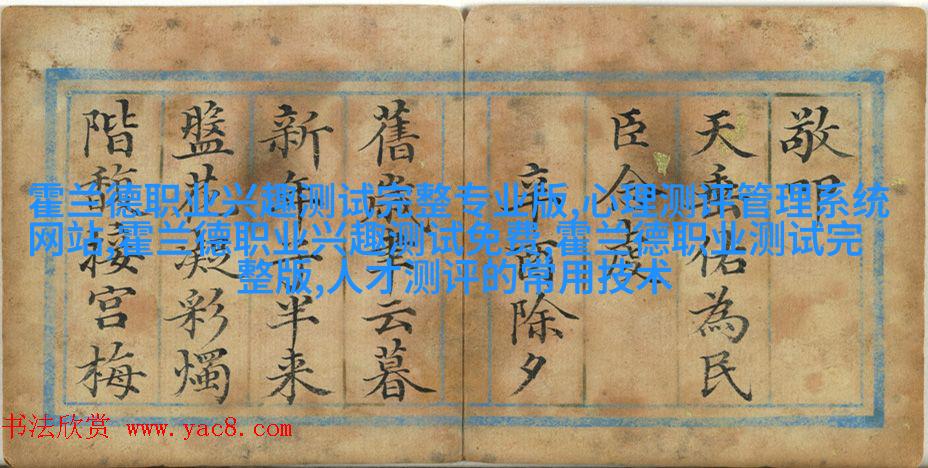 霍兰德职业兴趣测试完整专业版,心理测评管理系统
网站,霍兰德职业兴趣测试免费,霍兰德职业测试完
整版,人才测评的常用技术
敬
天垂佑為民
臣
辛酉除夕
舊歲云暮
新年半来
盤花凝彩燭
階馥接宮梅
书法欣赏 www.yac8.com